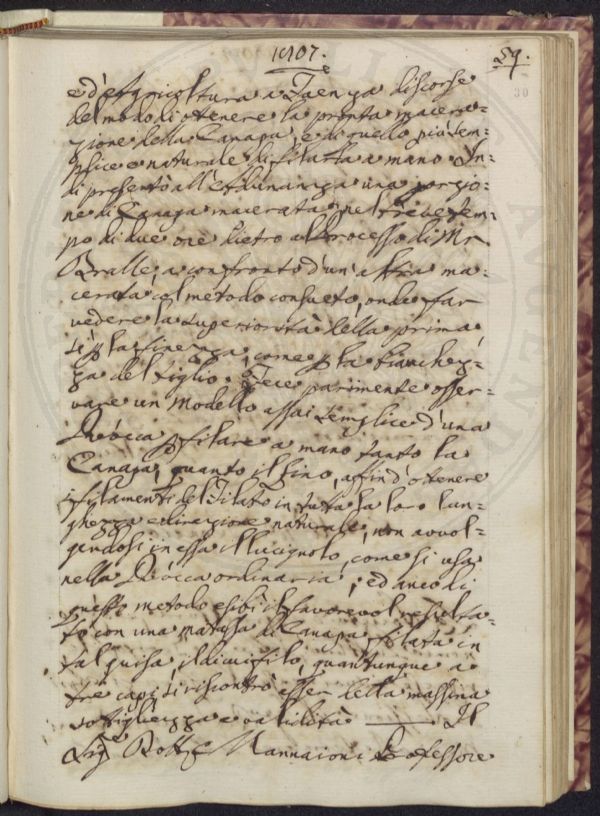 1807.
59.
30
e d'Agricoltura a Faenza discorse
del modo di otenere la pronta macera=
zione della Canapa, e di quello più sem=
plice e naturale di filatta a mano. In=
di presentò all'Adunanza una porzio=
ne di Canapa macerata nel breve tem=
po di due ore dietro al Processo di Mr.
Bralle, a confronto d'un altra ma=
cerata col metodo consueto, onde far
vedere la superiorità della prima
sì p la finezza, come p la bianchez=
za del Tiglio. Fece parimente osser=
vare un Modello assai semplice d'una
Rocca p filare a mano tanto la
Canapa, quanto il lino, affin d'otenere
i filamenti del Filato in tutta la loro lun=
ghezza e direzione naturale, non avvol=
gendosi in essa il lucignolo, come si usa
nella Rocca ordinaria; ed anco di
questo metodo esibì il favorevol resulta=
to con una matassa di Canapa filata in
tal guisa, il di cui filo, quantunque a
tre capi, si riscontrò esser della massima
sottigliezza e validità. ——— Il
Sigr. Dottr. Mannaioni Professore